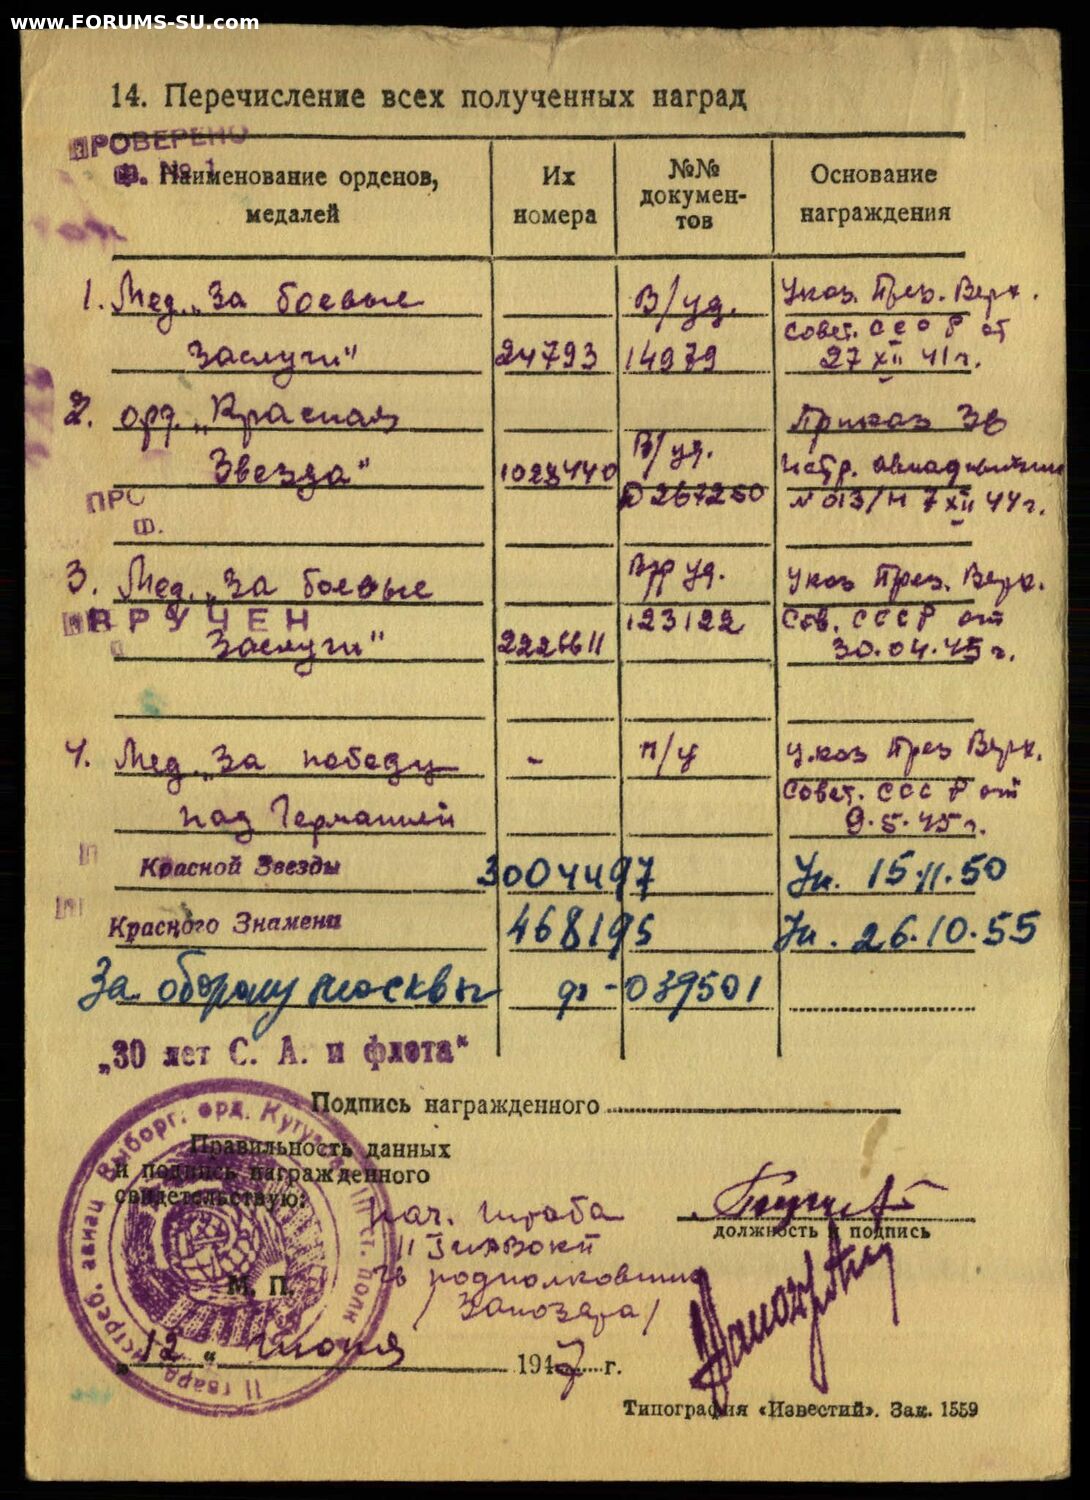 www.FORUMS-SU.com
14. Перечисление всех полученных наград
ПРОВЕРЕНО
Ф. № 1
Наименование орденов, медалей
Их номера
№№ докумен-тов
Основание награждения
1. Мед. „За боевые В/уд. Указ. През. Верх.
Совет. СССР от
заслуги" 24793 14979 27 XII 41 г.
2. орд. „Красная Приказ
Звезда" В/уд.
№ 013/н 7 XII 44 г.
ПРО
Ф.
3. Мед. „За боевые Вр уд. Указ През. Верх.
ВРУЧЕН
123122 Сов. СССР от
заслуги" 30.04.45 г.
4. Мед. „За победу - Указ През Верх.
Совет. СССР от
над Германией 9.5.45 г.
Красной Звезды 3004497 Ук. 15.11.50
Красного Знамени 468195 Ук. 26.10.55
За оборону москвы 039501
„30 лет С. А. и флота"
Подпись награжденного
Правильность данных
и подпись награжденного
свидетельствую:
нач. штаба
подполковник
должность и подпись
М. П.
11 гвард. истреб. авиац Выборг. орд. Кутузова III ст. полк
„12" июня 1947 г.
Типография «Известий». Зак. 1559